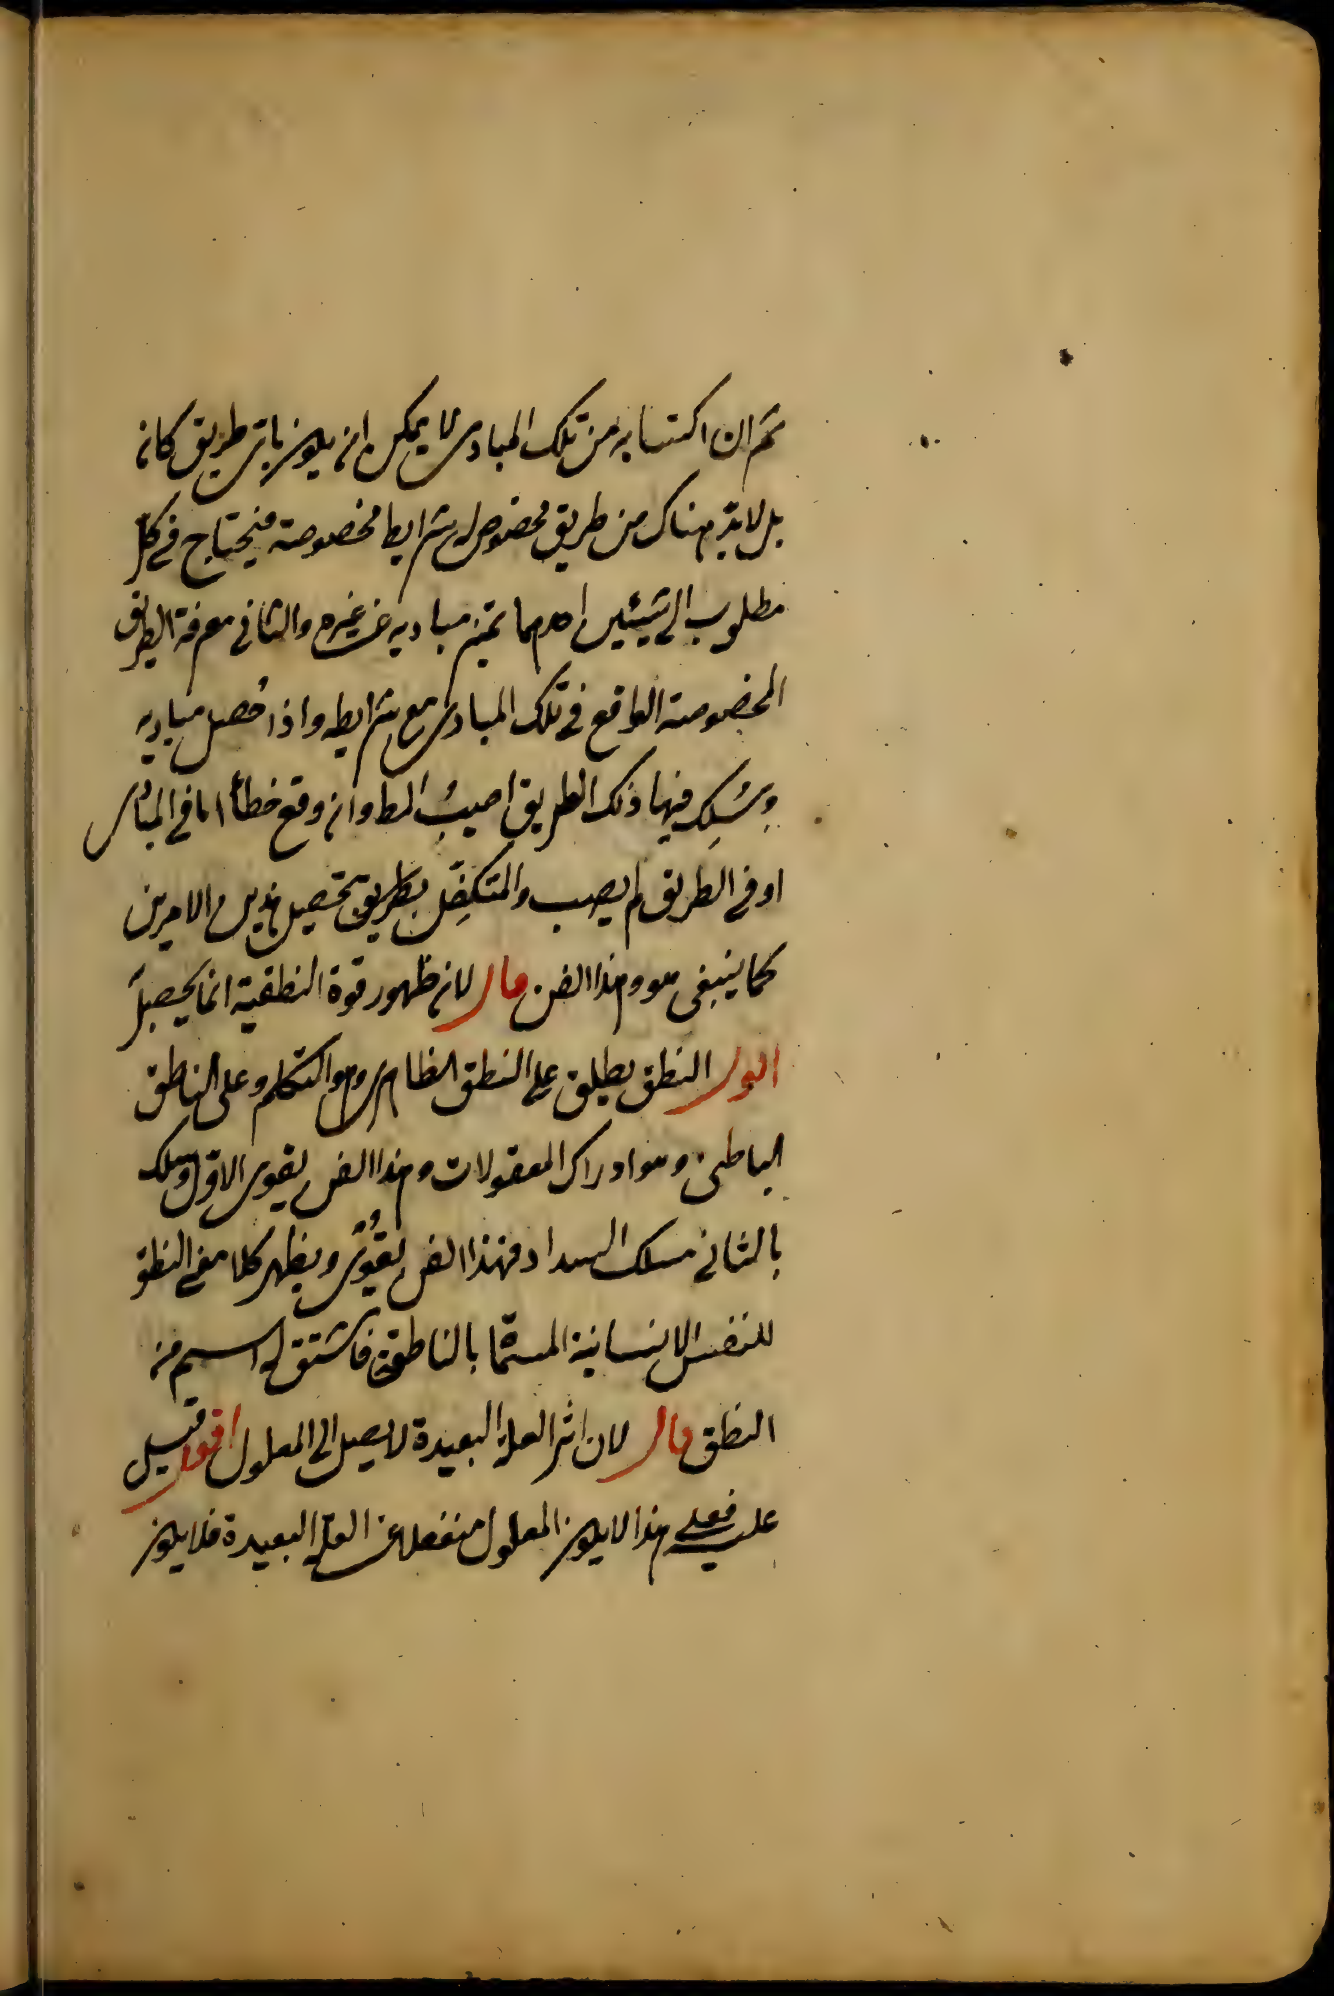 ثم ان اكتسابه من تلك المبادى لا يمكن ان يكون باى طريق كان
بل لا بد هناك من طريق مخصوص له شرايط مخصوصة فيحتاج فى كل
مطلوب الى شيئين احدهما تميز مباديه عن غيره والثانى معرفة الطريق
المخصوصة الواقع فى تلك المبادى مع شرايطه واذا حُصل مباديه
وسُلِك فيها ذلك الطريق اصيبُ المط وان وقع خطأ اما فى المبادى
او فى الطريق لم يصب والمتكفِّل بطريق تحصيل هذين الامرين
كما ينبغى هو هذا الفن قال لان ظهور قوة النطقية انما يحصل
اقول النطق يطلق على النطق الظاهرى وهو التكلم وعلى الناطق
الباطن وهو ادراك المعقولات وهذا الفن يقوى الاول ويسلك
بالثانى مسلك السداد فهذا الفن يقُوّى ويظهر كلا معنى النطق
للنفس الانسانية المسمّا بالناطقة فاشتق له اسم من
النطق قال لان اثر العلة البعيدة لا يصل الى المعلول اقول قيل
عليه فعلى هذا لا يكون المعلول منفعلا عن العلة البعيدة فلا يكون